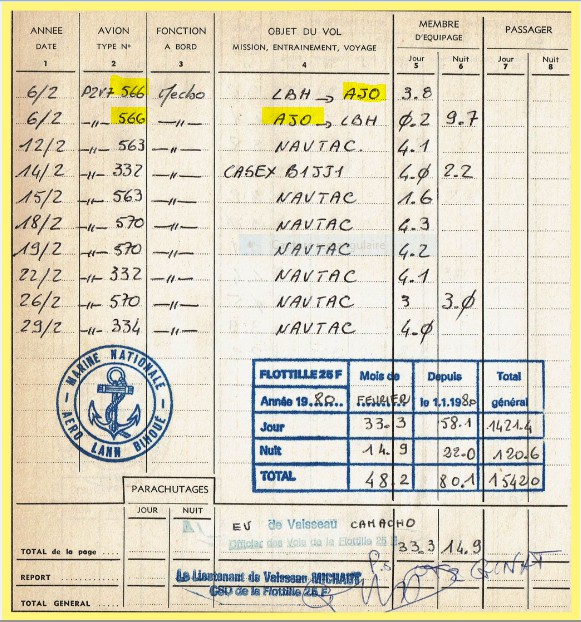 ANNEE AVION FONCTION OBJET DU VOL MEMBRE D'EQUIPAGE PASSAGER
DATE TYPE N° A BORD MISSION, ENTRAINEMENT, VOYAGE Jour Nuit Jour Nuit
1 2 3 4 5 6 7 8
6/2 P2V7 566 Mecbo LBH → AJO 3.8
6/2 -"- 566 -"- AJO → LBH 0.2 9.7
12/2 -"- 563 -"- NAVTAC. 4.1
14/2 -"- 332 -"- CASEX B1JJ1 4.0 2.2
15/2 -"- 563 -"- NAVTAC 1.6
18/2 -"- 570 -"- NAVTAC 4.3
19/2 -"- 570 -"- NAVTAC 4.2
22/2 -"- 332 -"- NAVTAC 4.1
26/2 -"- 570 -"- NAVTAC 3 3.0
29/2 -"- 334 -"- NAVTAC 4.0
MARINE NATIONALE
AERO LANN BIHOUE
FLOTTILLE 25F Mois de Depuis Total
Année 1980 FEVRIER le 1.1.1980 général
Jour 33.3 58.1 1421.4
Nuit 14.9 22.0 120.6
TOTAL 48.2 80.1 1542.0
PARACHUTAGES
JOUR NUIT
EV de Vaisseau CAMACHO
Officier des Vols de la Flottille 25
TOTAL de la page 33.3 14.9
REPORT
Le Lieutenant de Vaisseau MICHAUT
de la Flottille 25 F
TOTAL GENERAL